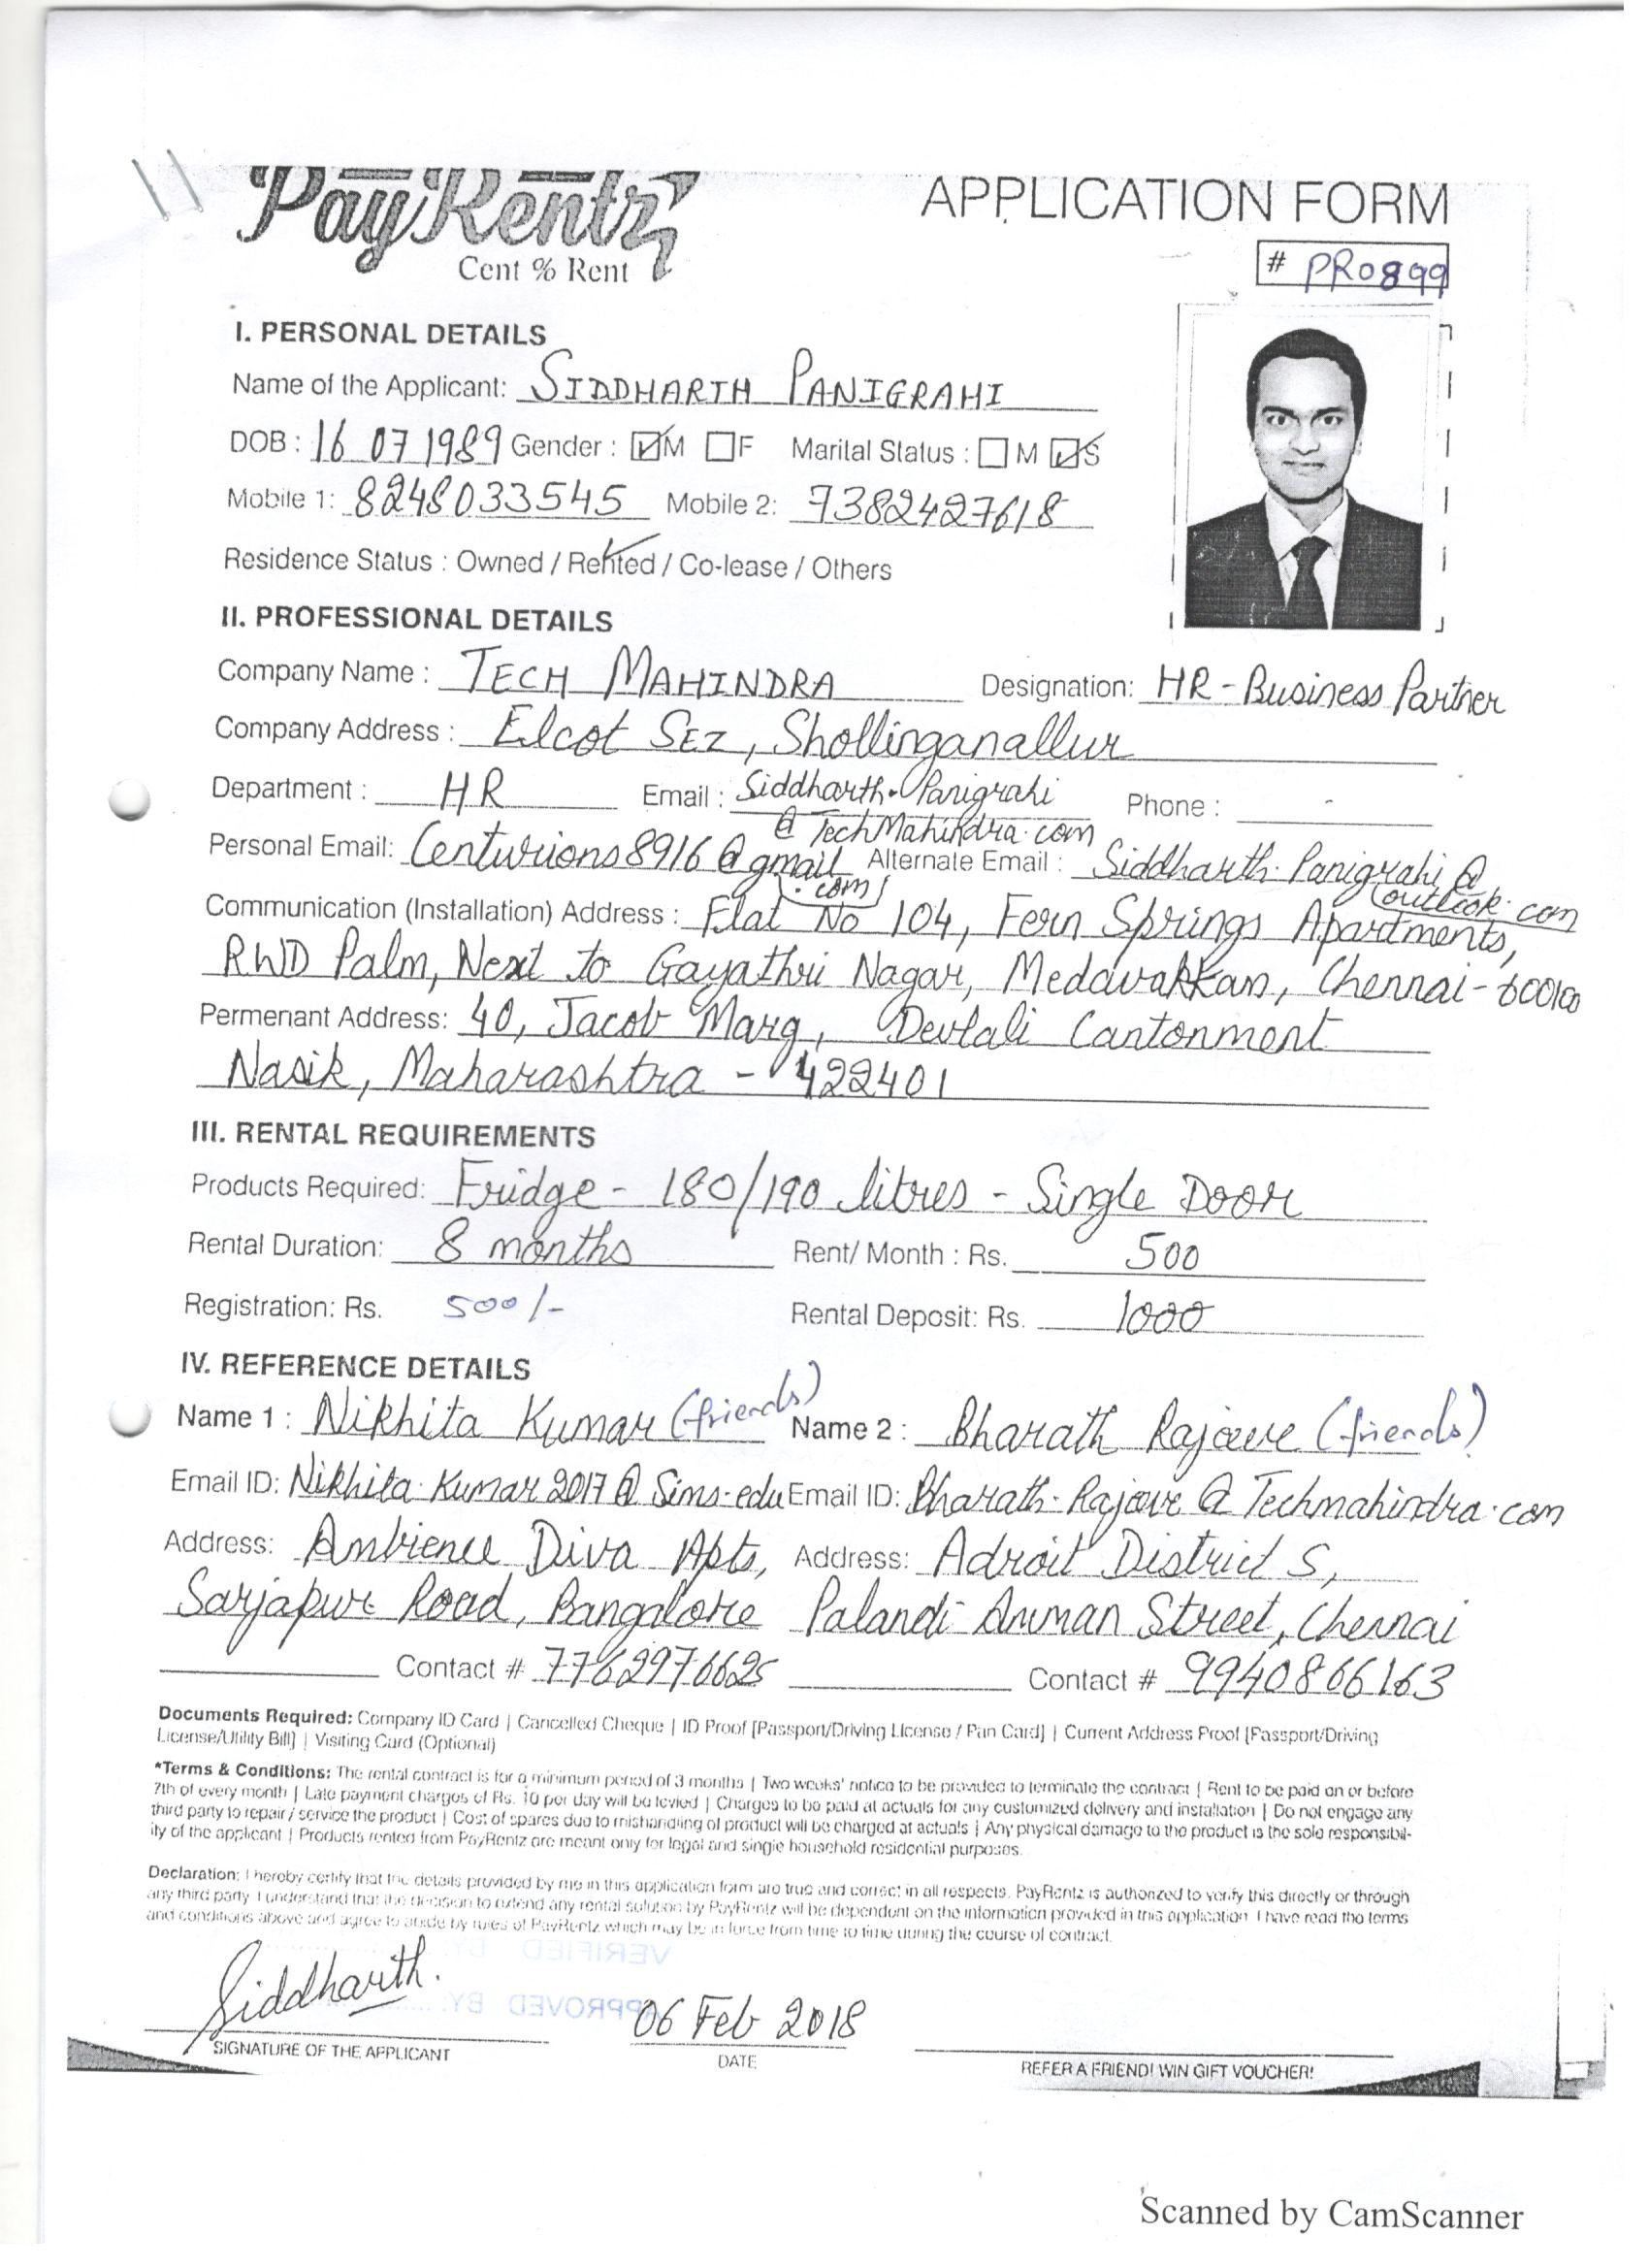 PayRentz
Cent % Rent
APPLICATION FORM
# PR0899
I. PERSONAL DETAILS
Name of the Applicant: SIDDHARTH PANIGRAHI
DOB : 16 07 1989 Gender : ☑M ☐F Marital Status : ☐ M ☑S
Mobile 1: 8248033545 Mobile 2: 7382427618
Residence Status : Owned / Rented / Co-lease / Others
II. PROFESSIONAL DETAILS
Company Name : TECH MAHINDRA Designation: HR-Business Partner
Company Address : Elcot SEZ, Shollinganallur
Department : HR Email : Siddharth.Panigrahi Phone : -
@TechMahindra.com
Personal Email: Centurions8916@gmail Alternate Email : Siddharth.Panigrahi@
.com outlook.com
Communication (Installation) Address : Flat No 104, Fern Springs Apartments,
RWD Palm, Next to Gayathri Nagar, Medavakkam, Chennai-600100
Permenant Address: 40, Jacob Marg, Devlali Cantonment
Nasik, Maharashtra - 422401
III. RENTAL REQUIREMENTS
Products Required: Fridge - 180/190 litres - Single Door
Rental Duration: 8 months Rent/ Month : Rs. 500
Registration: Rs. 500/- Rental Deposit: Rs. 1000
IV. REFERENCE DETAILS
Name 1 : Nikhita Kumar (friends) Name 2 : Bharath Rajeeve (friends)
Email ID: Nikhita.Kumar2017@Sims.edu Email ID: Bharath.Rajeeve@Techmahindra.com
Address: Ambience Diva Apts, Address: Adroit District S,
Sarjapure Road, Bangalore Palandi Amman Street, Chennai
Contact # 7762976625 Contact # 9940866163
Documents Required: Company ID Card | Cancelled Cheque | ID Proof [Passport/Driving License / Pan Card] | Current Address Proof [Passport/Driving
License/Utility Bill] | Visiting Card (Optional)
*Terms & Conditions: The rental contract is for a minimum period of 3 months | Two weeks' notice to be provided to terminate the contract | Rent to be paid on or before
7th of every month | Late payment charges of Rs. 10 per day will be levied | Charges to be paid at actuals for any customized delivery and installation | Do not engage any
third party to repair / service the product | Cost of spares due to mishandling of product will be charged at actuals | Any physical damage to the product is the sole responsibil-
ity of the applicant | Products rented from PayRentz are meant only for legal and single household residential purposes.
Declaration: I hereby certify that the details provided by me in this application form are true and correct in all respects. PayRentz is authorized to verify this directly or through
any third party. I understand that the decision to extend any rental solution by PayRentz will be dependent on the information provided in this application. I have read the terms
and conditions above and agree to abide by rules of PayRentz which may be in force from time to time during the course of contract.
VERIFIED BY:
APPROVED BY:
Siddharth.
06 Feb 2018
SIGNATURE OF THE APPLICANT
DATE
REFER A FRIEND! WIN GIFT VOUCHER!
Scanned by CamScanner